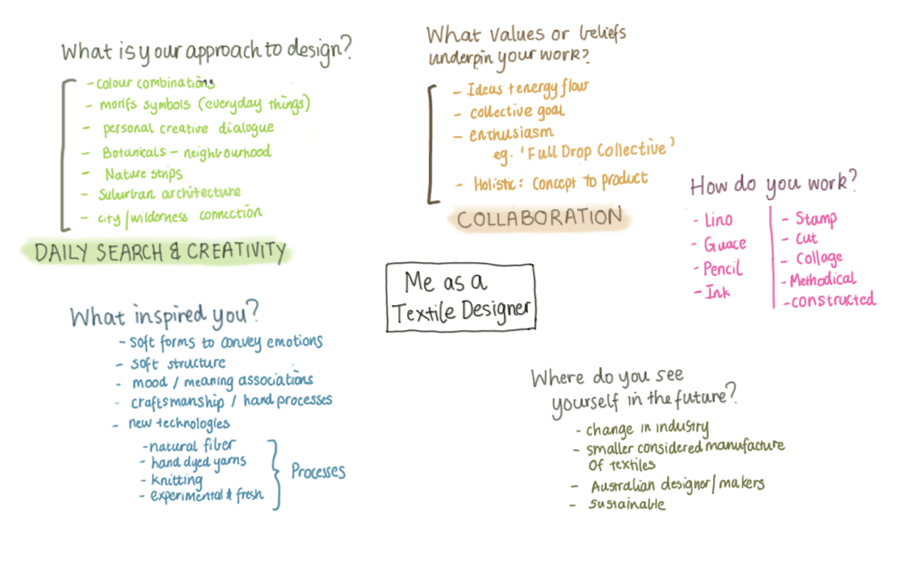 What is your approach to design?
- colour combinations
- motifs symbols (everyday things)
- personal creative dialogue
- Botanicals - neighbourhood
- Nature strips
- Suburban architecture
- city/wilderness connection
DAILY SEARCH & CREATIVITY
What values or beliefs
underpin your work?
- Ideas + energy flow
- collective goal
- enthusiasm
eg. 'Full Drop Collective'
- Holistic: Concept to product
COLLABORATION
How do you work?
- Lino
- Guace
- Pencil
- Ink
- Stamp
- Cut
- Collage
- Methodical
- constructed
Me as a
Textile Designer
What inspired you?
- soft forms to convey emotions
- soft structure
- mood / meaning associations
- craftsmanship / hand processes
- new technologies
- natural fiber
- hand dyed yarns
- knitting
- experimental & fresh
Processes
Where do you see
yourself in the future?
- change in industry
- smaller considered manufacture
of textiles
- Australian designer/makers
- sustainable